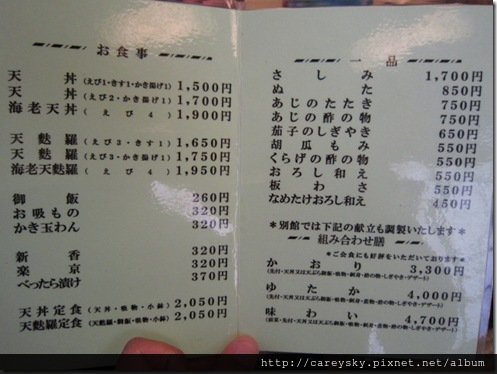 お食事
天丼(えび1・きす1・かき揚げ1) 1,500円
天丼(えび2・かき揚げ1) 1,700円
海老天丼(えび4) 1,900円
天麩羅(えび3・きす1) 1,650円
天麩羅(えび3・かき揚げ1) 1,750円
海老天麩羅(えび4) 1,950円
御飯 260円
お吸もの 320円
かき玉わん 320円
新香 320円
楽京 320円
べったら漬け 370円
天丼定食(天丼・吸物・小鉢) 2,050円
天麩羅定食(天麩羅・御飯・吸物・小鉢) 2,050円
一品
さしみ 1,700円
ぬた 850円
あじのたたき 750円
あじの酢の物 750円
茄子のしぎやき 650円
胡瓜もみ 550円
くらげの酢の物 550円
おろし和え 550円
板わさ 550円
なめたけおろし和え 450円
*別館では下記の献立も調製いたします*
組み合わせ膳
*ご会食にも好評をいただいております*
かおり 3,300円
(先付・天丼又は天ぷら御飯・吸物・刺身・酢の物・しぎやき・デザート)
ゆたか 4,000円
味わい 4,700円
http://careysky.pixnet.net/album